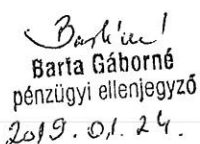 Barta Gáborné
pénzügyi ellenjegyző
2019. 01. 24.